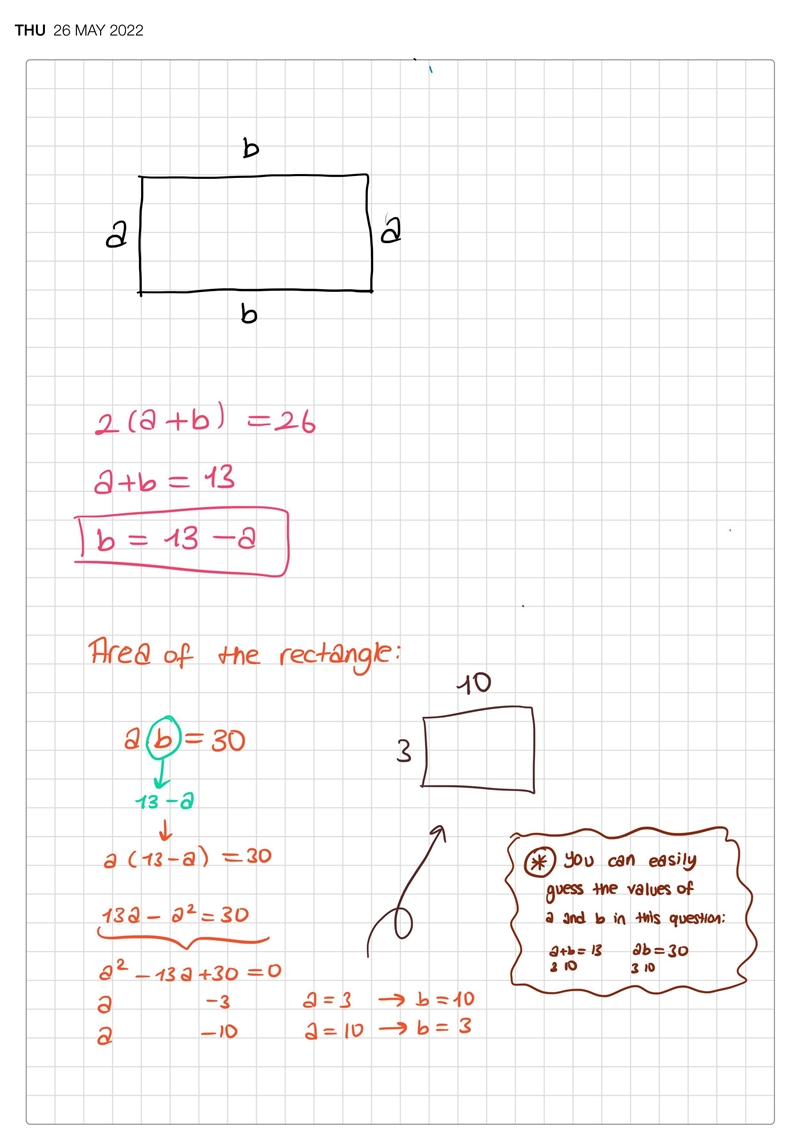 THU 26 MAY 2022
b
a
a
b
2(a+b) = 26
a+b = 13
b = 13 - a
Area of the rectangle:
10
3
ab = 30
13-a
a(13-a) = 30
13a - a² = 30
a² - 13a + 30 = 0
a -3 a=3 → b=10
a -10 a=10 → b=3
* You can easily
guess the values of
a and b in this question:
a+b=13 ab=30
3 10 3 10